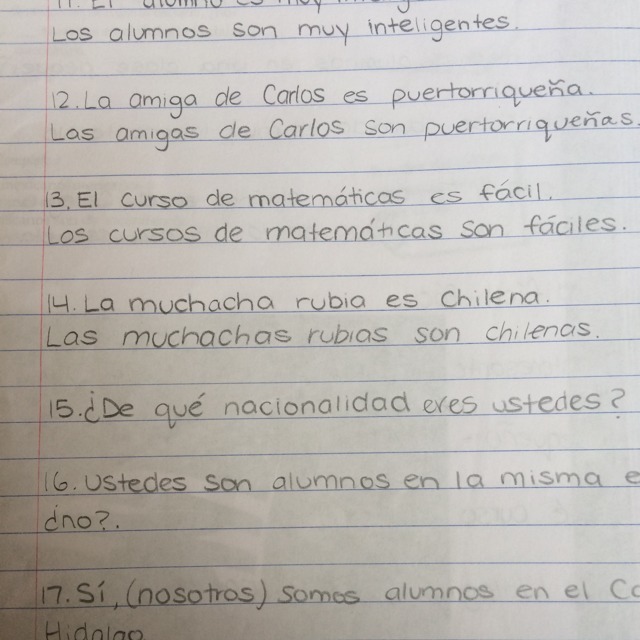 11. El alumno es muy
Los alumnos son muy inteligentes.
12. La amiga de Carlos es puertorriqueña.
Las amigas de Carlos son puertorriqueñas.
13. El curso de matemáticas es fácil.
Los cursos de matemáticas son fáciles.
14. La muchacha rubia es chilena.
Las muchachas rubias son chilenas.
15. ¿De qué nacionalidad eres ustedes?
16. Ustedes son alumnos en la misma e
¿no?.
17. Sí, (nosotros) somos alumnos en el Co
Hidalgo